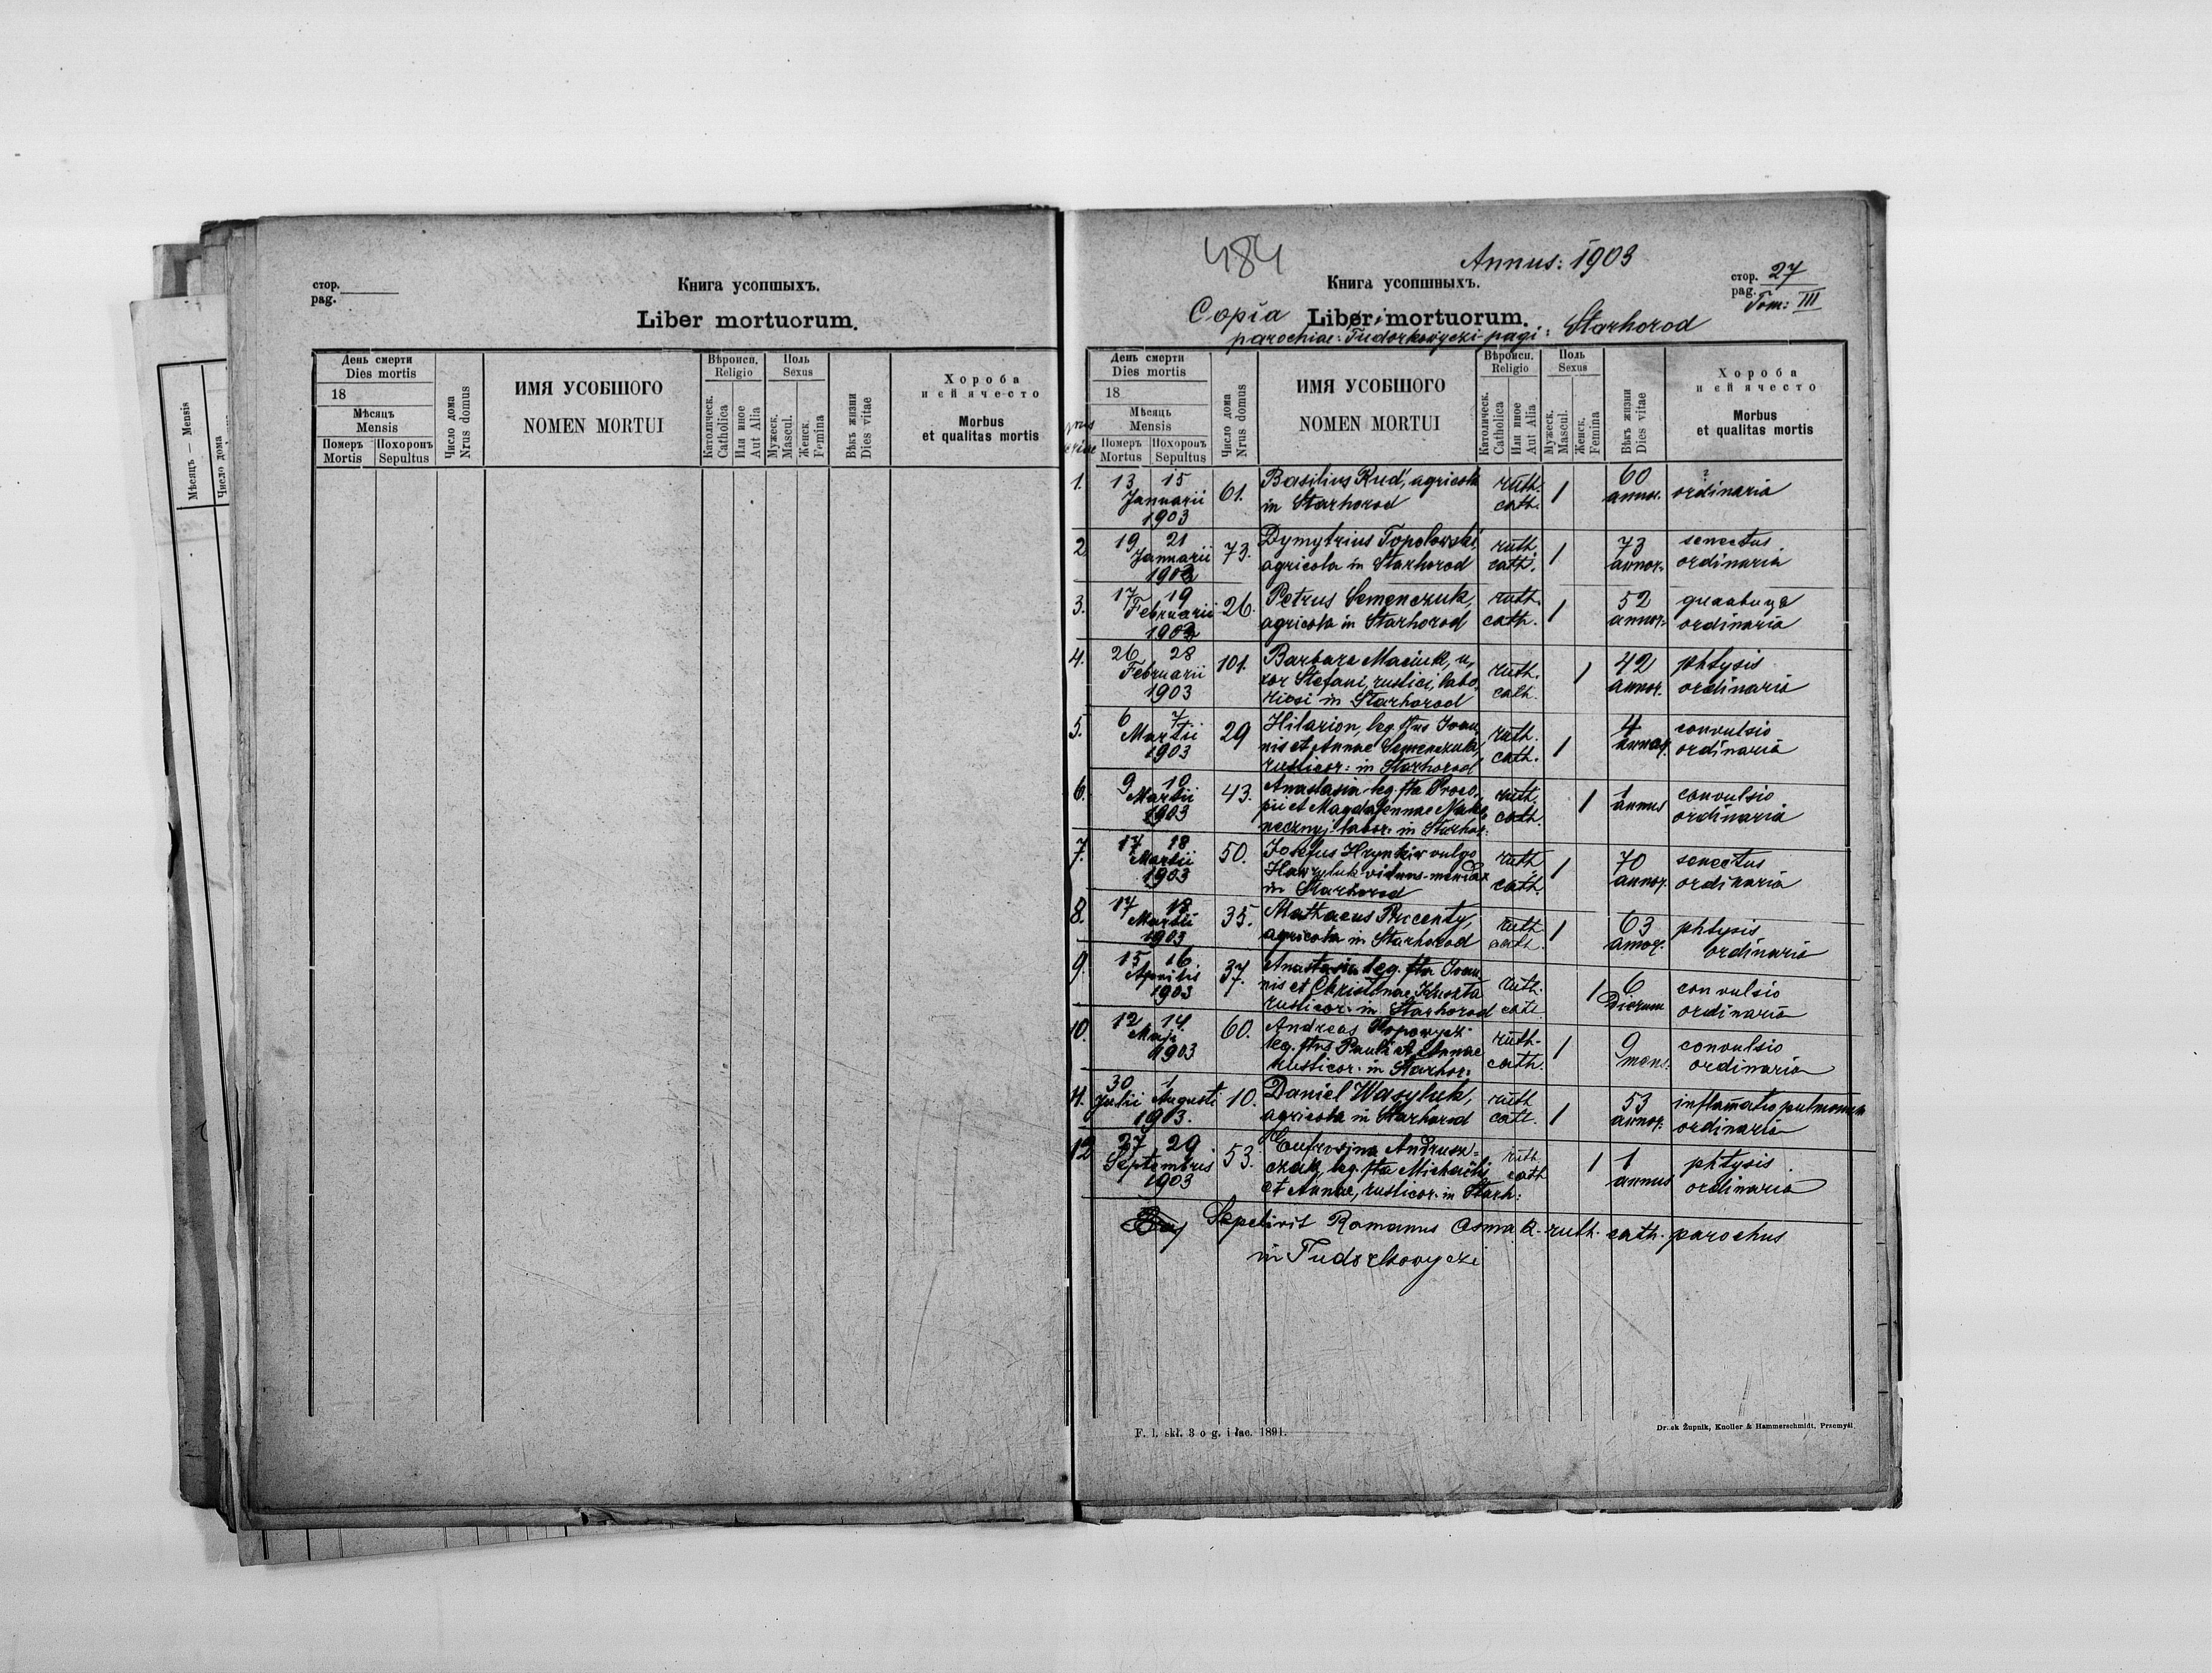 стор.
pag.
Книга усопшыхъ.
Liber mortuorum.
День смерти
Dies mortis
18
Мѣсяцъ
Mensis
Померъ
Mortis
Похоронъ
Sepultus
Число дома
Nrus domus
ИМЯ УСОБШОГО
NOMEN MORTUI
Вѣроисп.
Religio
Католическ.
Catholica
Или иное
Aut Alia
Поль
Sexus
Мужеск.
Mascul.
Женск.
Femina
Вѣкъ жизни
Dies vitae
Хороба
и еи ячесто
Morbus
et qualitas mortis
Мѣсяцъ — Mensis
Число дома
484
Annus: 1903
Книга усопшныхъ.
стор. 27
pag.
Tom: III
Copia Libri mortuorum.
parochiae: Tudorkowyczi pagi: Starhorod
День смерти
Dies mortis
18
Мѣсяць
Mensis
Померъ
Mortus
Похоронъ
Sepultus
Число дома
Nrus domus
ИМЯ УСОБШОГО
NOMEN MORTUI
Вѣроисп.
Religio
Католическ.
Catholica
Или иное
Aut Alia
Поль
Sexus
Мужеск.
Mascul.
Женск.
Femina
Вѣкъ жизни
Dies vitae
Хороба
и еи ячесто
Morbus
et qualitas mortis
1. 13 15 Januarii 1903 61. Basilius Rud, agricola
in Starhorod ruth. cath. 1 60 annor. ? ordinaria
2 19 21 Januarii 1903 73. Dymytrius Topolowski,
agricola in Starhorod ruth. cath. 1 73 annor. senectus ordinaria
3. 17 19 Februarii 1903 26. Petrus Semenczuk,
agricola in Starhorod ruth. cath. 1 52 annor. ordinaria
4. 26 28 Februarii 1903 101. Barbara Maciuk, u,
xor Stefani, rustici, labo,
riosi in Starhorod ruth. cath. 1 42 annor. phtysis ordinaria
5. 6 7 Martii 1903 29 Hilarion, leg. ftus Joan,
nis et Annae Semenczuk,
rusticor: in Starhorod ruth. cath. 1 4 annor. convulsio ordinaria
6. 9 10 Martii 1903 43. Anastasia leg. fta Proco,
pii et Magdalennae Nako,
necznyj labor. in Starhor: ruth. cath. 1 1 annus convulsio ordinaria
7. 17 18 Martii 1903 50. Josefus Hrynkiw vulgo
Hawryluk viduus-mendax
in Starhorod ruth. cath. 1 70 annor. senectus ordinaria
8. 17 18 Martii 1903 35. Mathaeus Pucenty,
agricola in Starhorod ruth. cath. 1 63 annor. phtysis ordinaria
9. 15 16 Aprilis 1903 37. Anastasia leg. fta Joan,
nis et Christinae
rusticor. in Starhorod ruth. cath. 1 6 Dierum convulsio ordinaria
10. 12 14 Maji 1903 60. Andreas Popowycz
leg. ftus Pauli et Annae
rusticor. in Starhor: ruth. cath. 1 9 mens. convulsio ordinaria
11. 30 Julii 1 Augusti 1903. 10. Daniel Wasyluk,
agricola in Starhorod ruth cath. 1 53 annor. inflamatio pulmonum ordinaria
12 27 29 Septembris 1903 53. Eufrosina Andrusz=
czak, leg. fta Michaëlis
et Annae, rusticor. in Starh: ruth cath 1 1 annus phtysis ordinaria
Sepelivit Romanus ruth. cath. parochus
in Tudorkowyczi
F. l. skł. 3 o g. i łac. 1891.
Druk Żupnik, Knoller & Hammerschmidt, Przemyśl